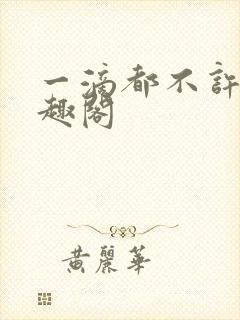 一滴都不許
趣閣
黃麗華